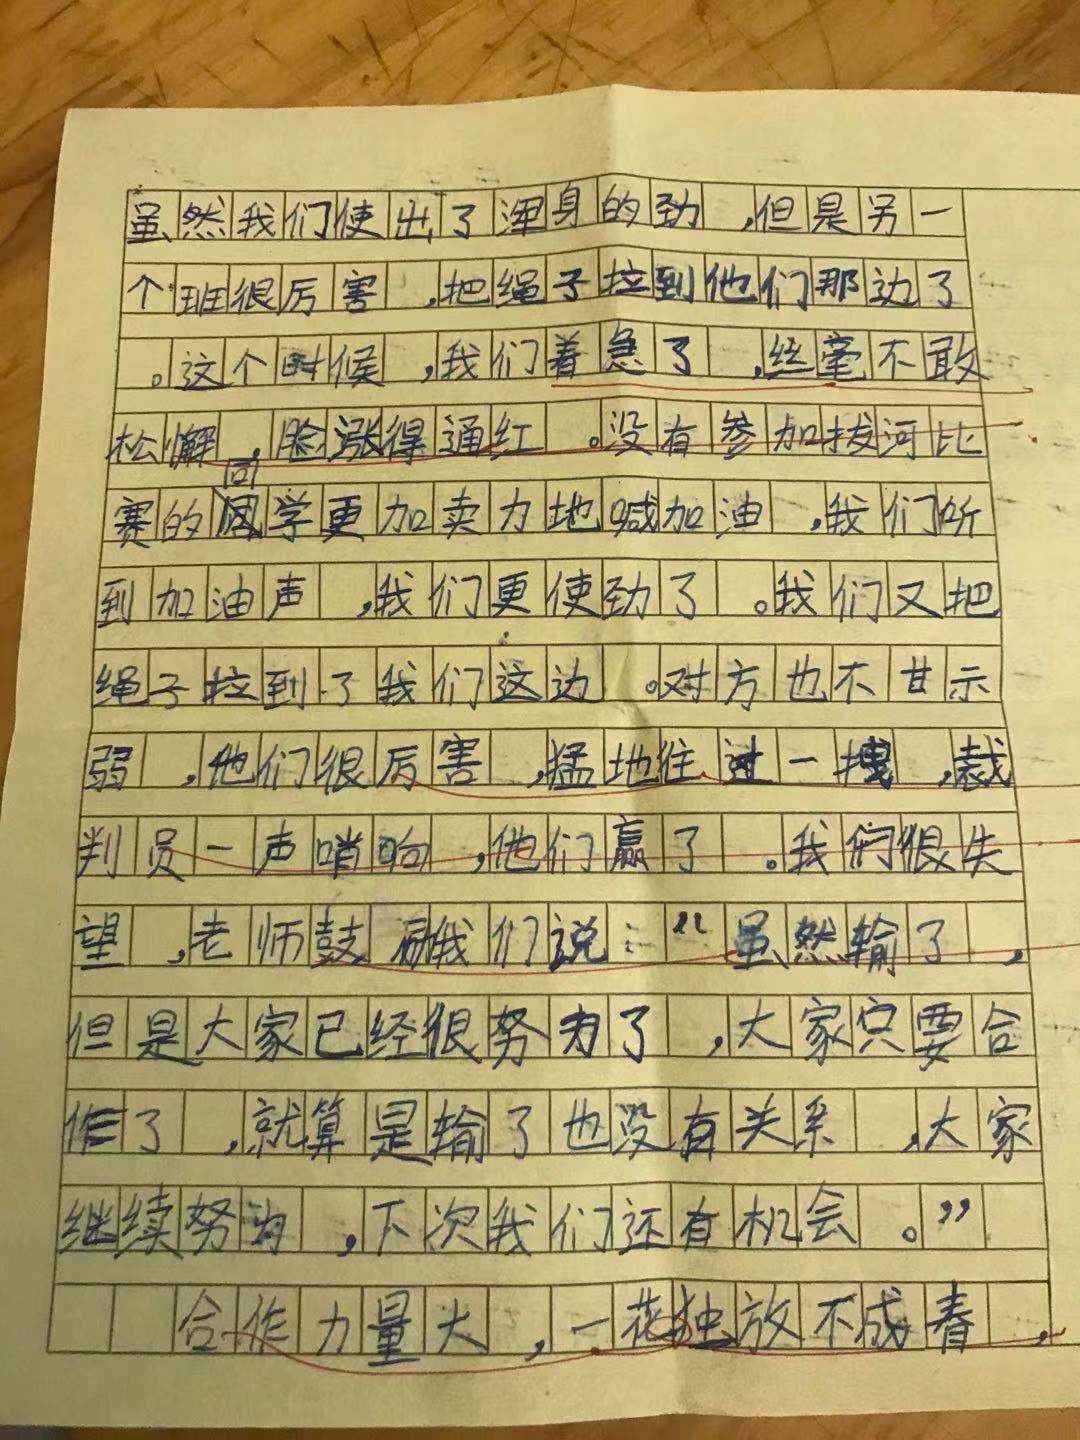 虽然我们使出了浑身的劲,但是另一
个班很厉害,把绳子拉到他们那边了
。这个时候,我们着急了,丝毫不敢
松懈,脸涨得通红。没有参加拔河比
赛的同学更加卖力地喊加油,我们听
到加油声,我们更使劲了。我们又把
绳子拉到了我们这边。对方也不甘示
弱,他们很厉害,猛地往过一拽,裁
判员一声哨响,他们赢了。我们很失
望,老师鼓励我们说:“虽然输了,
但是大家已经很努力了,大家只要合
作了,就算是输了也没有关系,大家
继续努力,下次我们还有机会。”
合作力量大,一花独放不成春,